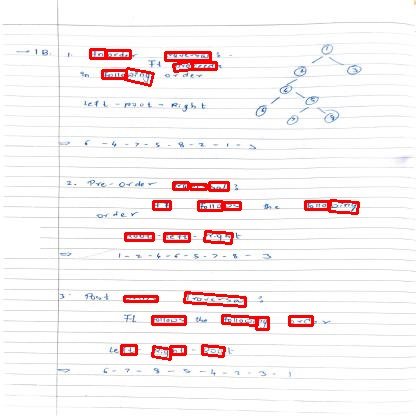 → 1B. 1. Inorder Traversals -
It traverses
in following order
Left - root - Right
⇒ 6 - 4 - 7 - 5 - 8 - 2 - 1 - 3
2. Pre-order traversal :
It follows the following
order
root - left - right
⇒ 1 - 2 - 4 - 6 - 5 - 7 - 8 - 3
3. Post order Traversal :
It follows the following order
Left - Right - root
⇒ 6 - 7 - 8 - 5 - 4 - 2 - 3 - 1